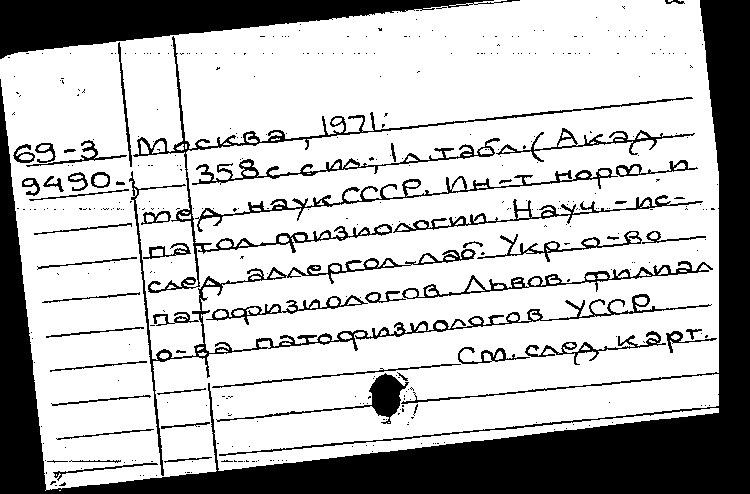 69-3 Москва, 1971.
9490-3 358с. с ил.; 1л. табл. (Акад.
мед. наук СССР. Ин-т норм. и
патол. физиологии. Науч.-ис-
след. аллергол. лаб. Укр. о-во
патофизиологов. Львов. филиал
о-ва патофизиологов УССР.
См. след. карт.
2